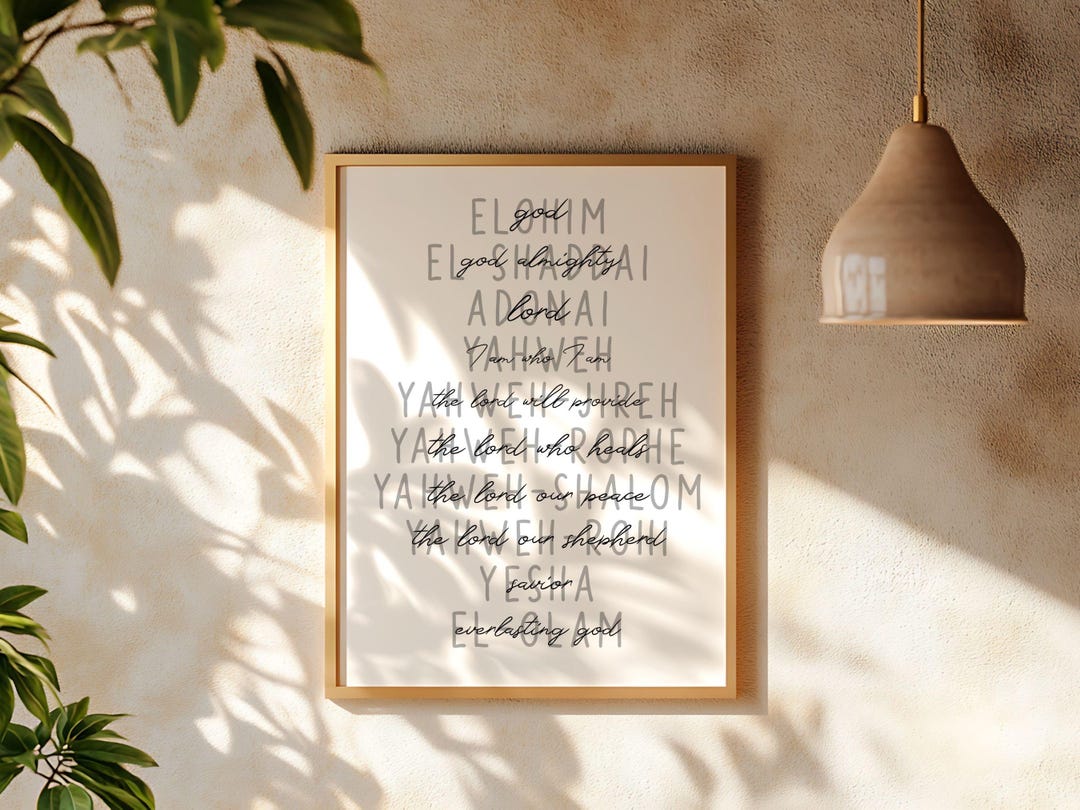 ELOHIM
god
EL SHADDAI
god almighty
ADONAI
lord
YAHWEH
I am who I am
YAHWEH-JIREH
the lord will provide
YAHWEH-ROPHE
the lord who heals
YAHWEH-SHALOM
the lord our peace
YAHWEH-ROHI
the lord our shepherd
YESHA
savior
EL OLAM
everlasting god